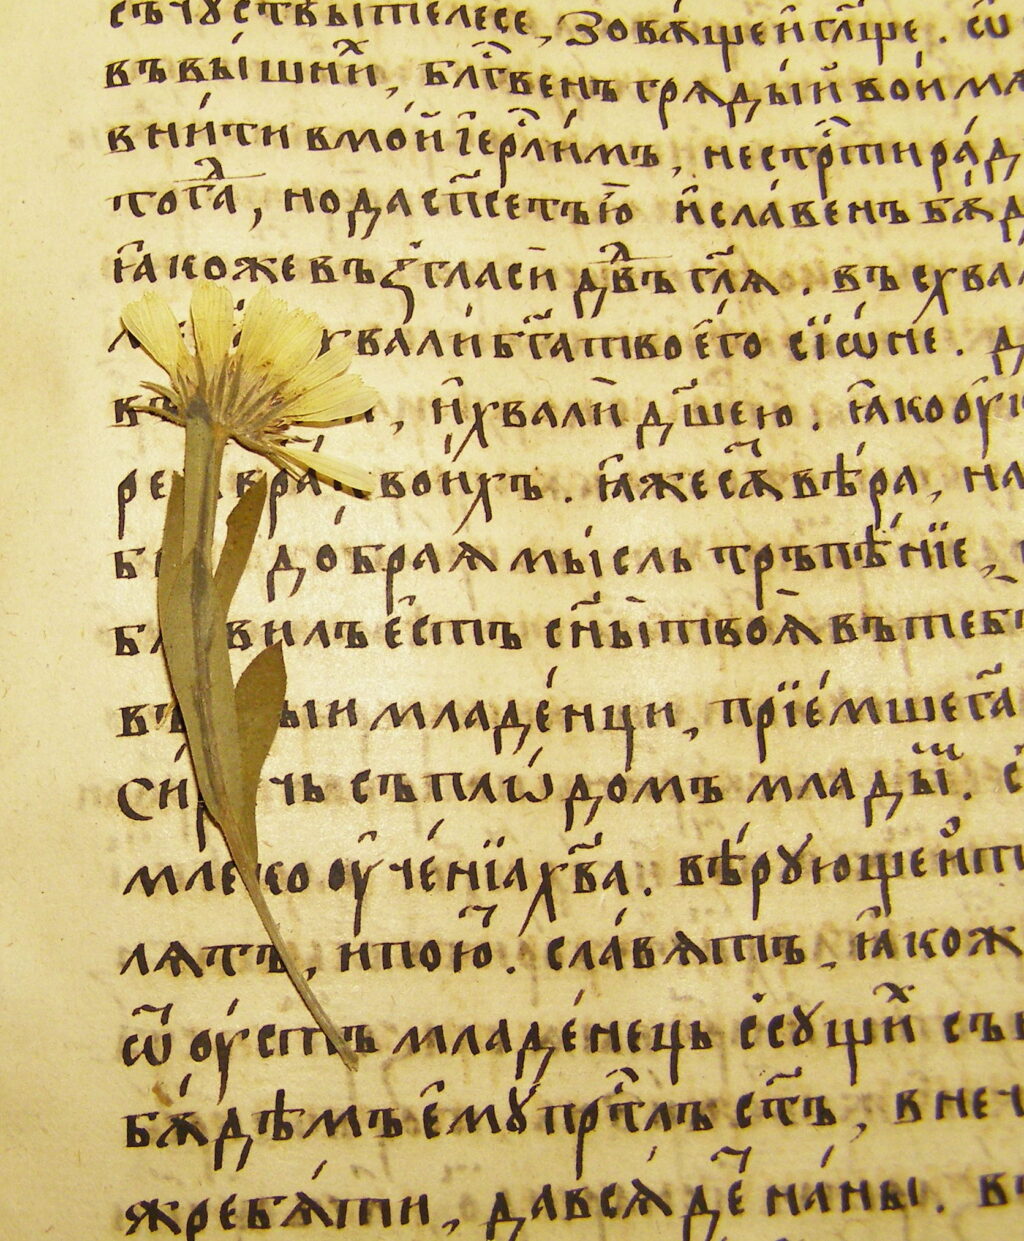 съчꙋствы телесе, Зовѫще и҆ гл҃ще. ѿ
въ вы́шни́х, бл҃гⷭ҇венъ грѧды́й во и҆мѧ
вни́ти в мо́й і҆ерⷭ҇ли́мъ, не стрⷭ҇ти ра́д
тогⷣа, но да сп҃сетъ ю҆ и҆ сла́венъ бѫд
ꙗ҆коже въ ѯ҃ гласи дв҃дъ гл҃ѧ. въсхвал
хвали бг҃а твоего̀ сїѡ́не.
, и҆ хвали̏ дш҃ею. ꙗ҆ко оу҆
вои́хъ. ꙗ҆же сѫ вѣ́ра, на
до́браѧ мы́сль тръпѣ́нїе,
е҆сть сн҃ы̀ твоѧ̏ въ теб
младе́нци, прїе́мше г҃а
съ плѡ́домъ млады́и.
млеко оу҆че́нїа хв҃а. вѣ́рꙋюще и҆
лѧтъ, и пою҆. сла́вѧтъ, ꙗ҆кож
ѿ оу҆стъ младе́нець ссꙋ́щих съв
бѫ́дѣмъ е҆мꙋ̀ прⷭ҇тлъ ст҃ъ, в неч
жребѧ́ти, да всѧ́де на́ ны. в